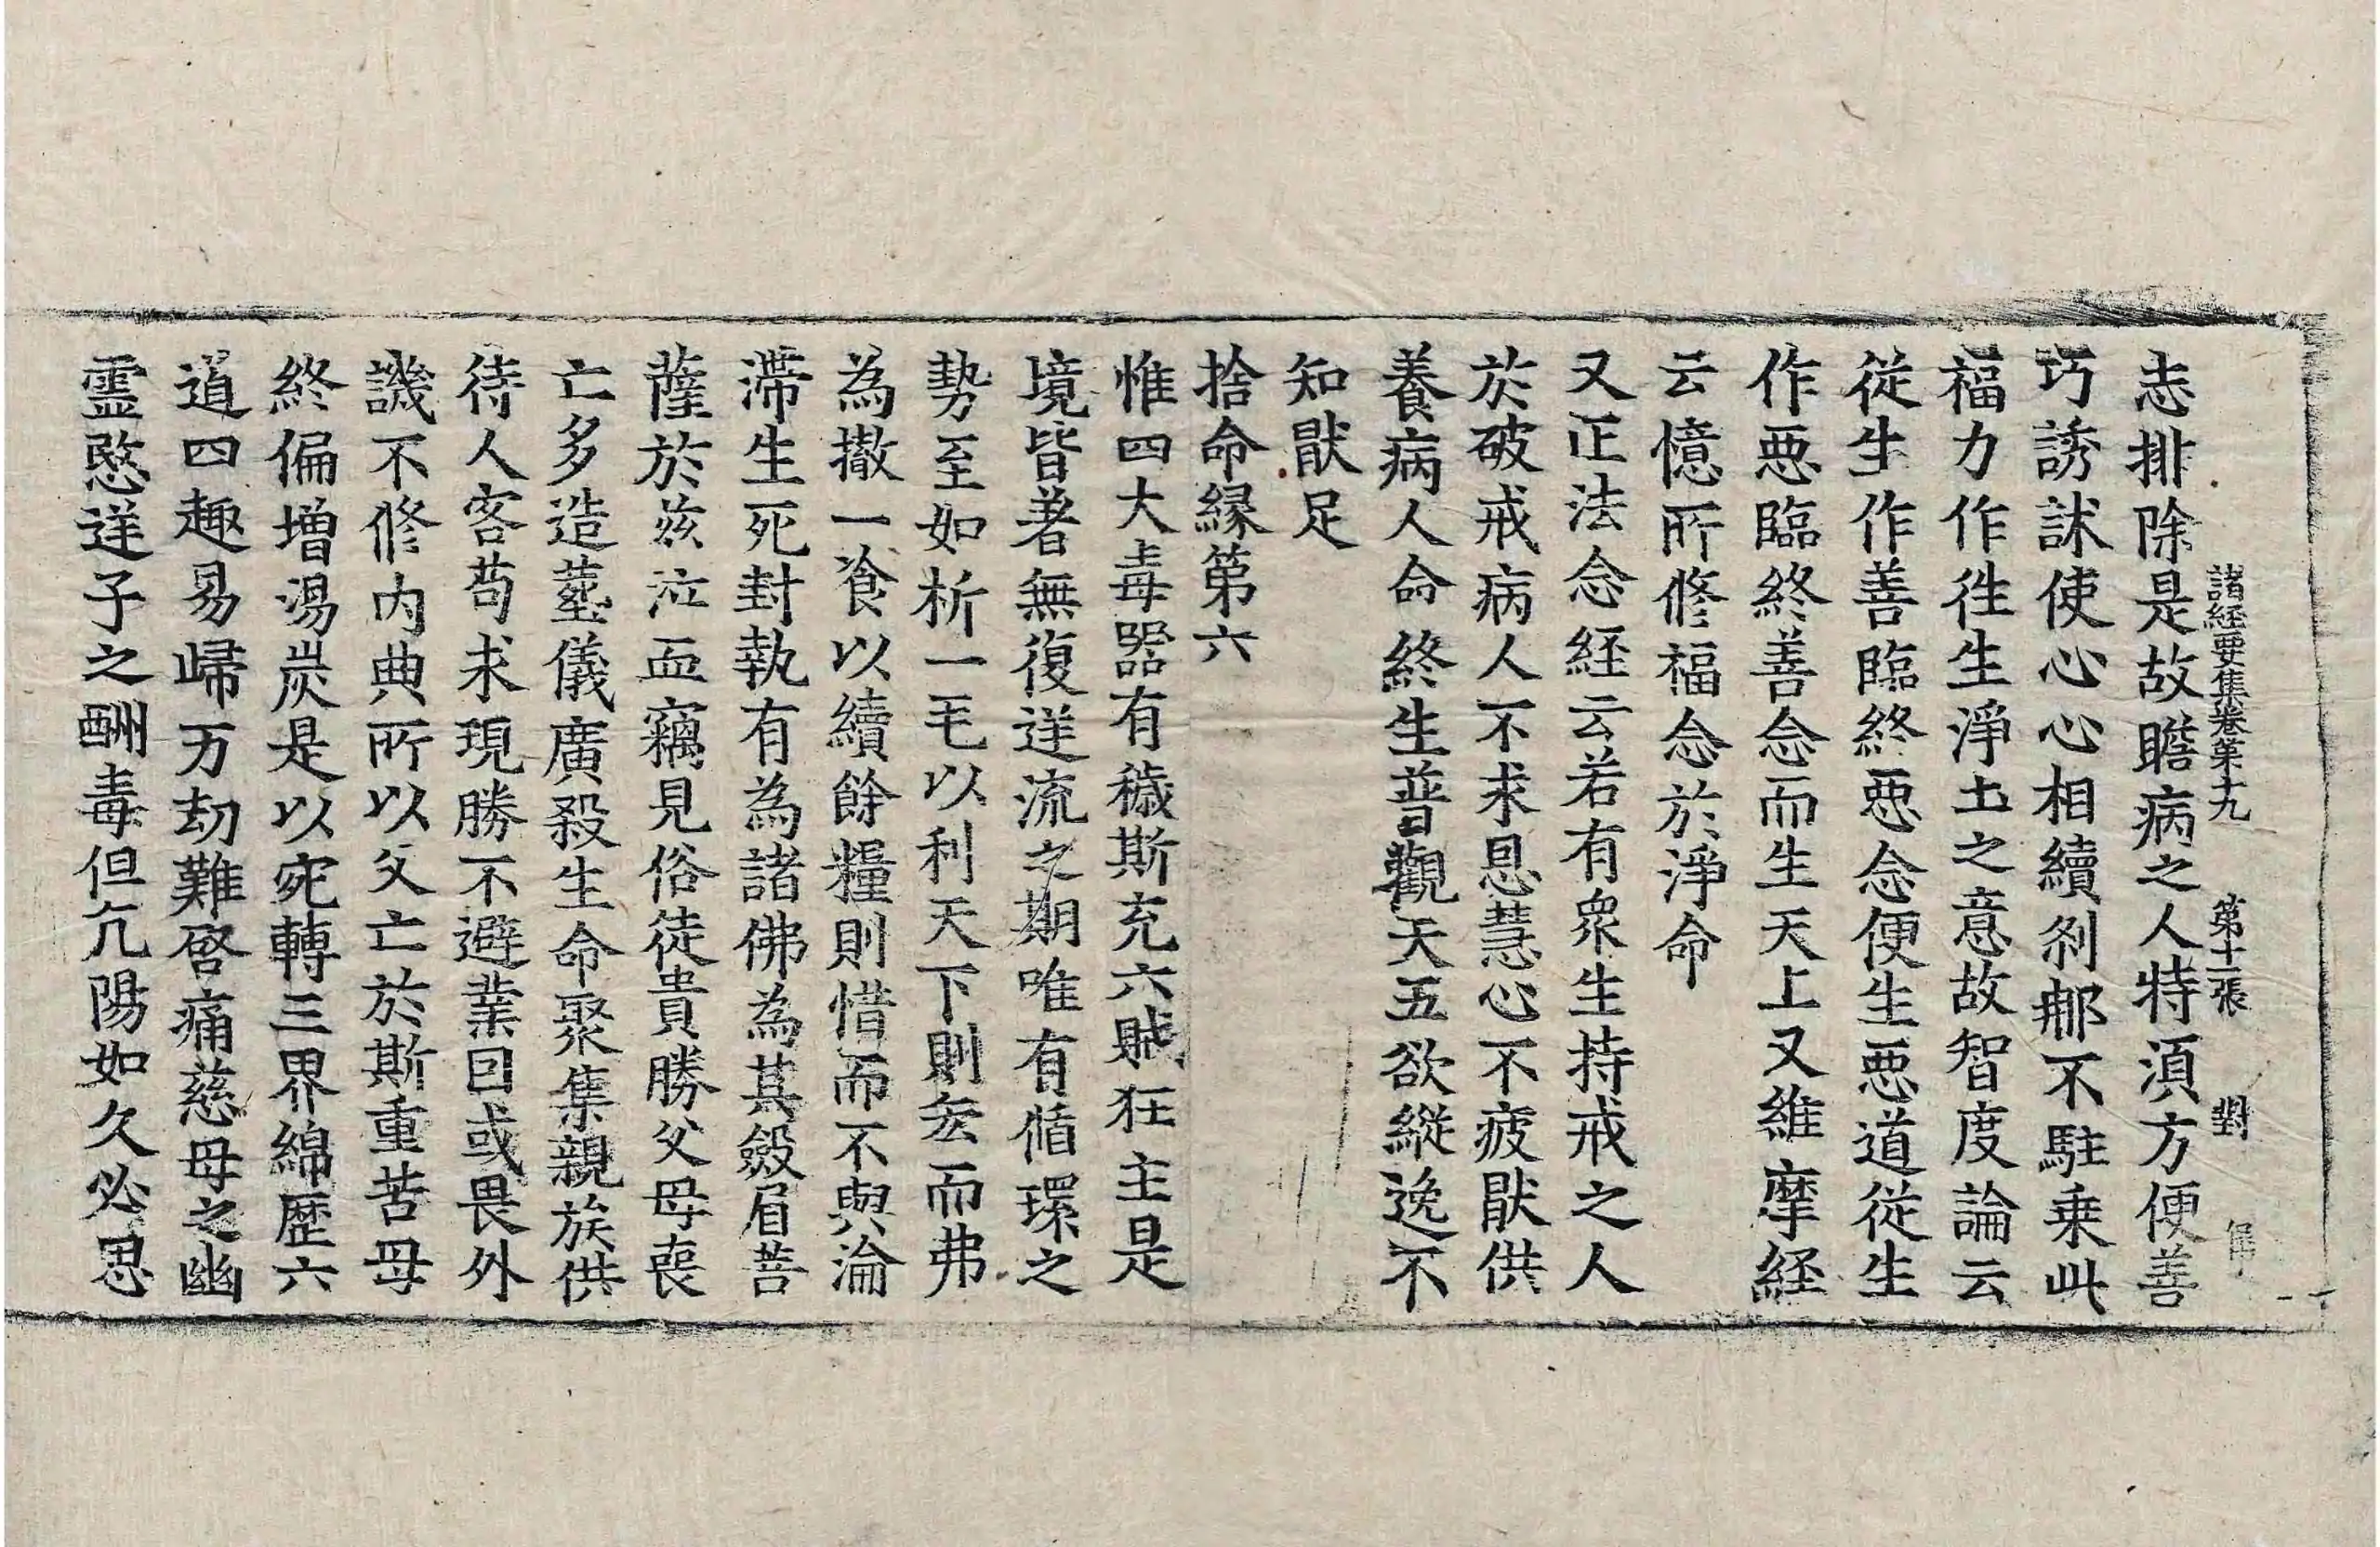 諸經要集卷第十九 第十二張 對
志排除是故瞻病之人特湏方便善
巧誘訹使心心相續刹那不駐乗此
福力作徃生淨土之意故智度論云
從生作善臨終惡念便生惡道從生
作惡臨終善念而生天上又維摩經
云憶所修福念於淨命
又正法念經云若有衆生持戒之人
於破戒病人不求恩慧心不疲猒供
養病人命終生普觀天五欲縱逸不
知猒足
捨命縁第六
惟四大毒器有穢斯充六賊狂主是
境皆著無復送流之期唯有循環之
勢至如析一毛以利天下則𠫤而弗
為撤一飡以續餘糧則惜而不與淪
滯生死封執有為諸佛為其斂眉菩
薩於兹泣血竊見俗徒貴勝父母喪
亡多造塟儀廣殺生命聚集親族供
待人客苟求現勝不避業因或畏外
譏不修内典所以父亡於斯重苦母
終偏增湯炭是以宛轉三界綿歷六
道四趣易歸万劫難啓痛慈母之幽
霊愍送子之酬毒但亢陽如久必思